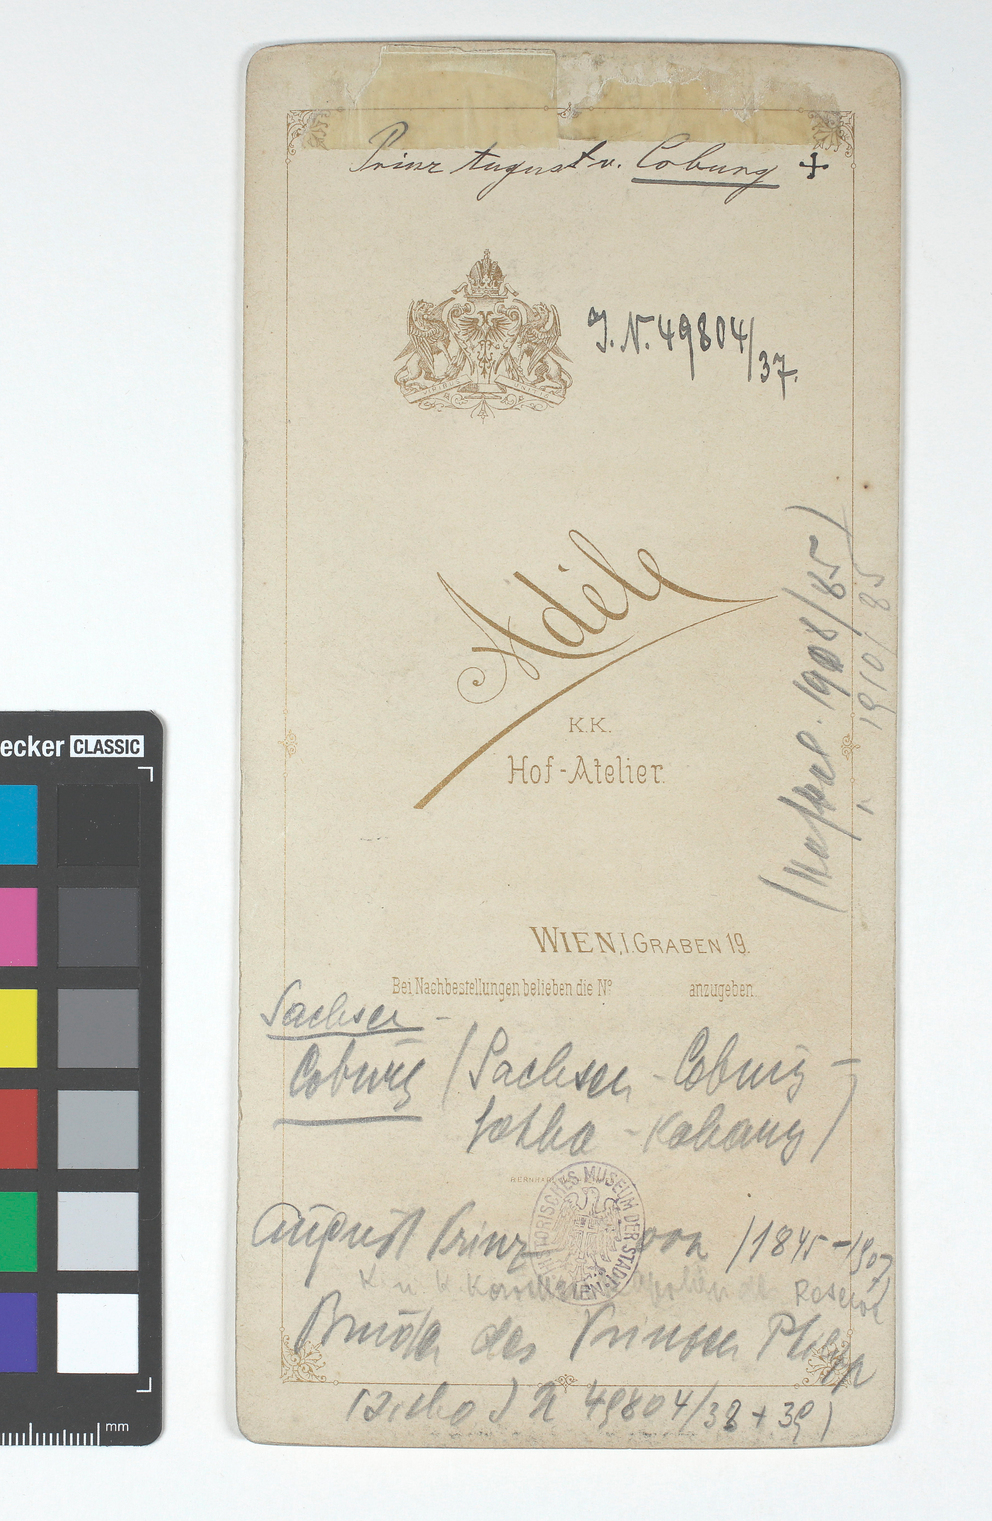 Prinz August v. Coburg +
J.N. 49804/37.
Adéle
K.K.
Hof-Atelier.
1908/85)
1910/85
ecker CLASSIC
WIEN, I. GRABEN 19.
Bei Nachbestellungen belieben die Nº anzugeben.
Sachsen-
Coburg (Sachsen-Coburg-
Gotha-Kohary)
BERNHARD
HISTORISCHES MUSEUM DER STADT WIEN
August Prinz von (1845-1907)
K. u. K.
Bruder des Prinzen Philipp
(siehe J N 49804/38+39)
mm